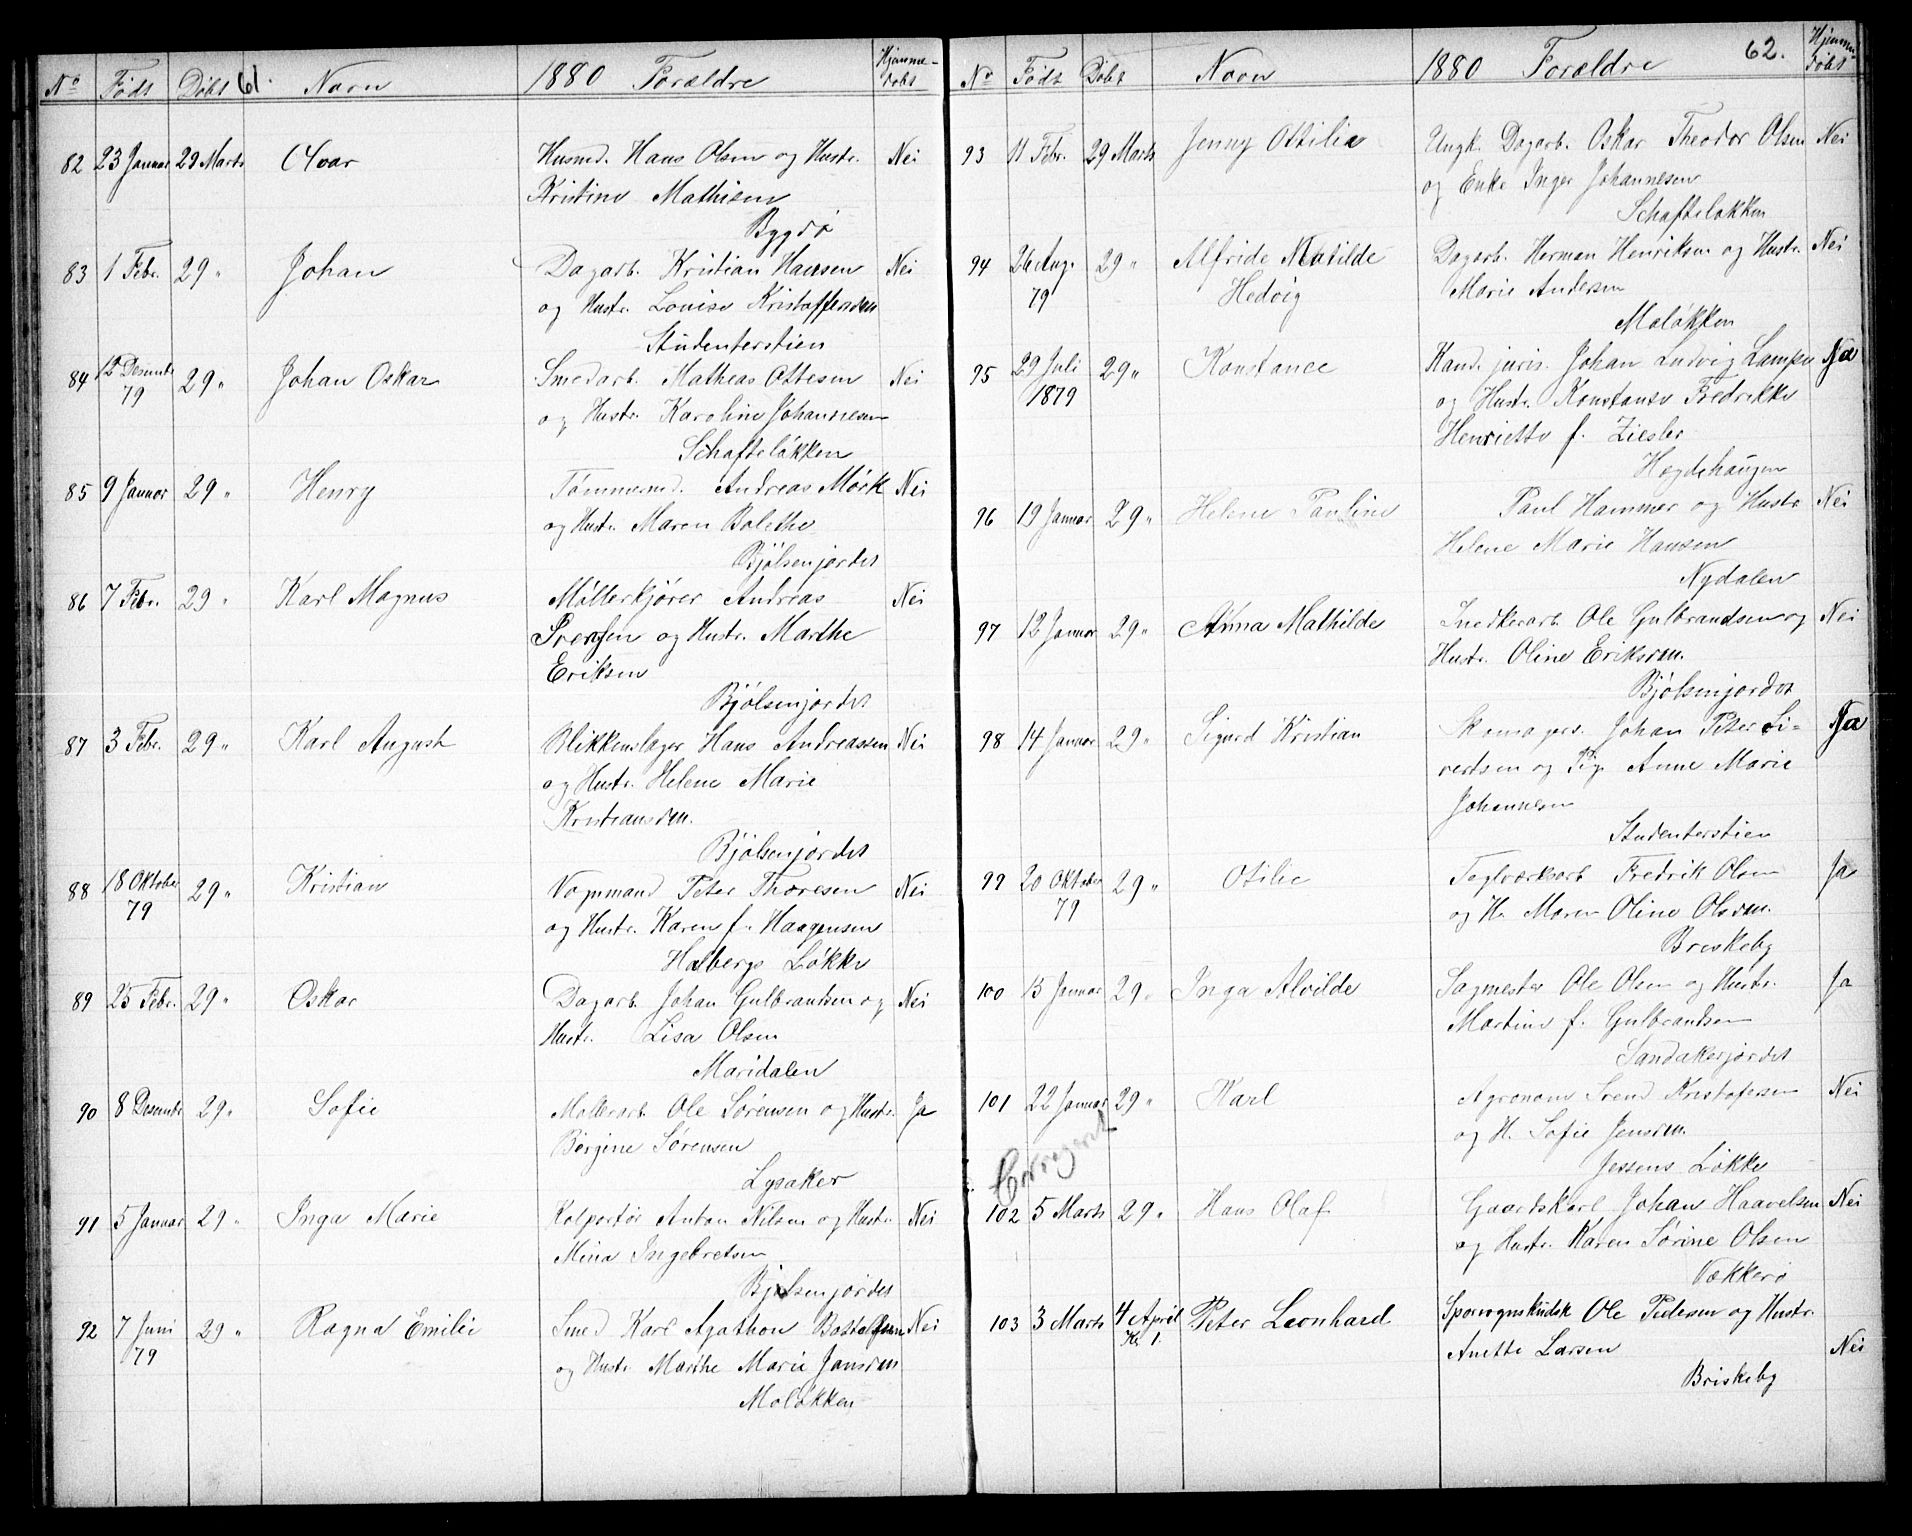 No Födt Döbt 61. Navn 1880 Forældre Hjemme-döbt
82 23 Januar 29 Marts Alvar Husmd. Hans Olsen og Hustr. Nei
Kristine Mathisen
Bygdö
83 1 Febr. 29 " Johan Dagarb. Kristian Hansen Nei
og Hustr. Louise Kristoffersen
Studenterstien
84 12 Desembr 79 29 " Johan Oskar Smedarb. Matheas Ottesen Nei
og Hustr. Karoline Johannesen
Schafteløkken
85 9 Januar 29 " Henry Tømmermd. Andreas Mørk Nei
og Hustr. Maren Bolethe
Bjølsenjordet
86 7 Febr. 29 " Karl Magnus Møllerkjører Andreas Nei
og Hustr. Marthe
Eriksen
Bjølsenjordet
87 3 Febr. 29 " Karl August Blikkenslager Hans Andreassen Nei
og Hustr. Helene Marie
Kristiansen.
Bjølsenjordet
88 18 Oktober 79 29 " Kristian Vognmand Peter Thoresen Nei
og Hustr. Karen f. Haagensen
Holbergs Løkke
89 25 Febr. 29 " Oskar Dagarb. Johan Gulbrandsen og Nei
Hustr. Lisa Olsen
Maridalen
90 8 Desembr 29 " Sofie Møllerarb. Ole Sørensen og Hustr. Ja
Børgine Sørensen
Lysaker
91 5 Januar 29 " Inga Marie Kolportør Anton Nilsen og Hustr. Nei
Mina Ingebretsen
Bjølsenjordet
92 7 Juni 79 29 " Ragna Emilie Smed Karl Agathon Nei
og Hustr. Marthe Marie Jansen
Moløkken
No Födt Döbt Navn 1880 Forældre 62. Hjemme-döbt
93 11 Febr. 29 Marts Jenny Ottilie Ungk. Dagarb. Oskar Theodor Olsen Nei
og Enke Inger Johannesen
Schafteløkken
94 26 Aug. 79 29 " Alfride Matilde Hedvig Dagarb. Herman Henriksen og Hustr. Nei
Marie Andersen
Moløkken
95 29 Juli 1879 29 " Konstance Kand. juris. Johan Ludvig Lampe Ja
og Hustr. Konstanse Fredrikke
Henriette f. Ziesler
Hægdehaugen
96 19 Januar 29 " Helene Pauline Paul Hammer og Hustr. Nei
Helene Marie Hansen
Nydalen
97 12 Januar 29 " Anna Mathilde Snedkerarb. Ole Gulbrandsen og Nei
Hustr. Oline Eriksen.
Bjølsenjordet
98 14 Januar 29 " Sigurd Kristian Skomagers. Johan Peter Si- Ja
vertsen og Pig. Anne Marie
Johannesen
Studenterstien
99 20 Oktober 79 29 " Otilie Teglværksarb. Fredrik Olsen Ja
og H. Maren Oline Olsen.
Briskeby
100 15 Januar 29 " Inga Alvilde Sagmester Ole Olsen og Hustr. Ja
Martine f. Gulbrandsen
Sandakerjordet
101 22 Januar 29 " Karl Agronom Svend Kristofersen Nei
og H. Sofie Jensen.
Jessens Løkke
Corrigeret
102 5 Marts 29 " Hans Olaf Gaardskarl Johan Haavelsen Nei
og Hustr. Karen Sørine Olsen
Vækkerø
103 3 Marts 4 April Kl. 1. Peter Leonhard Sporvognskudsk Ole Pedersen og Hustr.
Anette Larsen Nei
Briskeby